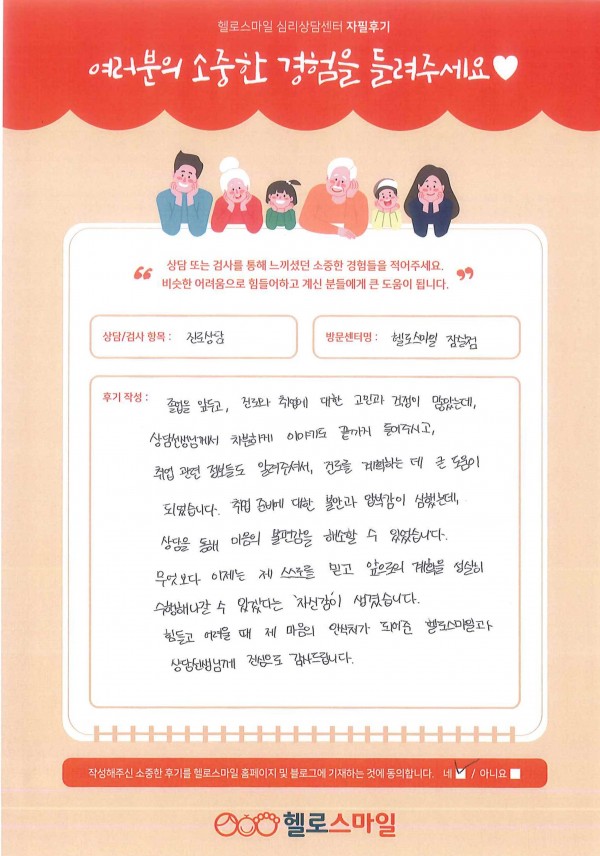 헬로스마일 심리상담센터 자필후기
여러분의 소중한 경험을 들려주세요♥
“ 상담 또는 검사를 통해 느끼셨던 소중한 경험들을 적어주세요.
비슷한 어려움으로 힘들어하고 계신 분들에게 큰 도움이 됩니다. ”
상담/검사 항목 : 진로상담
방문센터명 : 헬로스마일 잠실점
후기 작성 : 졸업을 앞두고, 진로와 취업에 대한 고민과 걱정이 많았는데,
상담선생님께서 차분하게 이야기도 끝까지 들어주시고,
취업 관련 정보들도 알려주셔서, 진로를 계획하는 데 큰 도움이
되었습니다. 취업 준비에 대한 불안과 압박감이 심했는데,
상담을 통해 마음의 불편감을 해소할 수 있었습니다.
무엇보다 이제는 제 스스로를 믿고 앞으로의 계획을 성실히
수행해나갈 수 있겠다는 '자신감'이 생겼습니다.
힘들고 어려울 때 제 마음의 안식처가 되어준 헬로스마일과
상담선생님께 진심으로 감사드립니다.
작성해주신 소중한 후기를 헬로스마일 홈페이지 및 블로그에 기재하는 것에 동의합니다. 네 ✓ / 아니요
헬로스마일